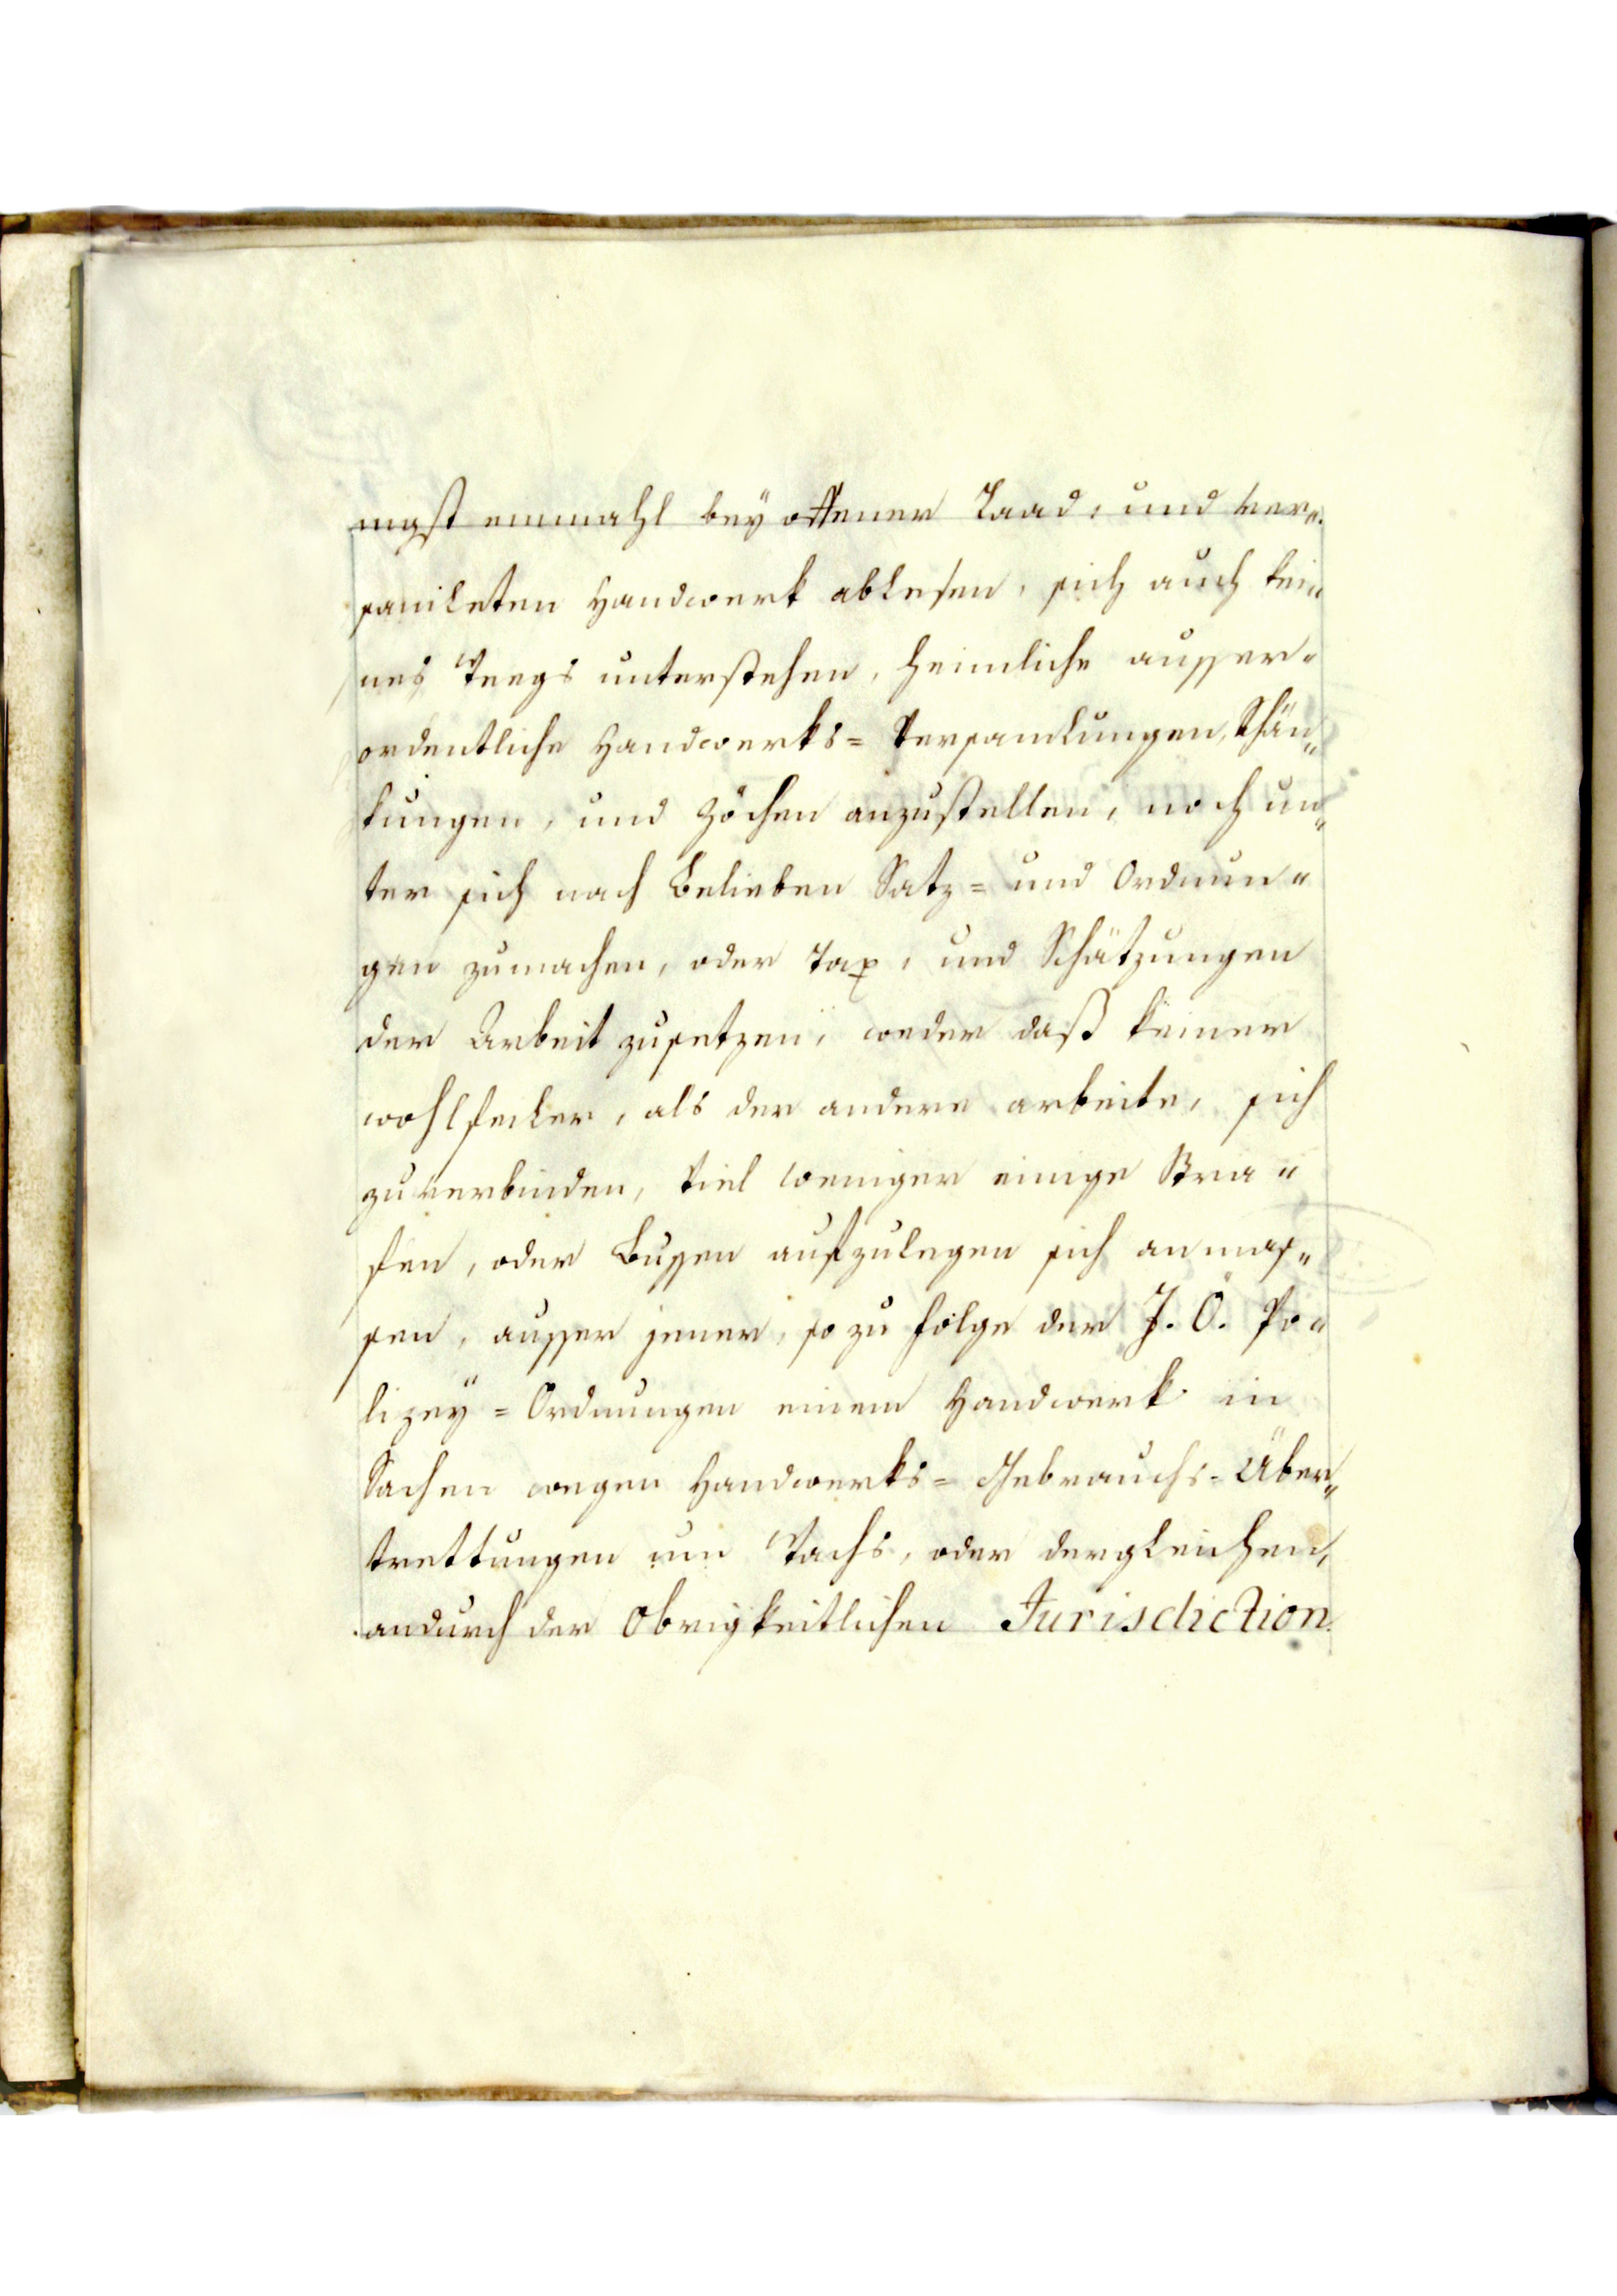 nigst einmahl beÿ offener Laad, und ver„
samleten Handwerk ablesen, sich auch kei„
nes Weegs unterstehen, heimliche ausser„
ordentliche Handwerks= Versamlungen, Schän„
kungen, und Zöchen anzustellen, noch un„
ter sich nach Belieben Satz= und Ordnun„
gen zumachen, oder Tax, und Schätzungen
der Arbeit zusetzen, weder daß keiner
wohlfeiler, als der andere arbeite, sich
zuverbinden, viel weniger einige Stra„
fen, oder Bussen aufzulegen sich anmas„
sen, ausser jener, so zu folge der J. Ö. Po„
lizeÿ= Ordnungen einem Handwerk in
Sachen wegen Handwerks= Gebrauchs= Über„
trettungen um Wachs, oder dergleichen,
andurch der Obrigkeitlichen Jurisdiction